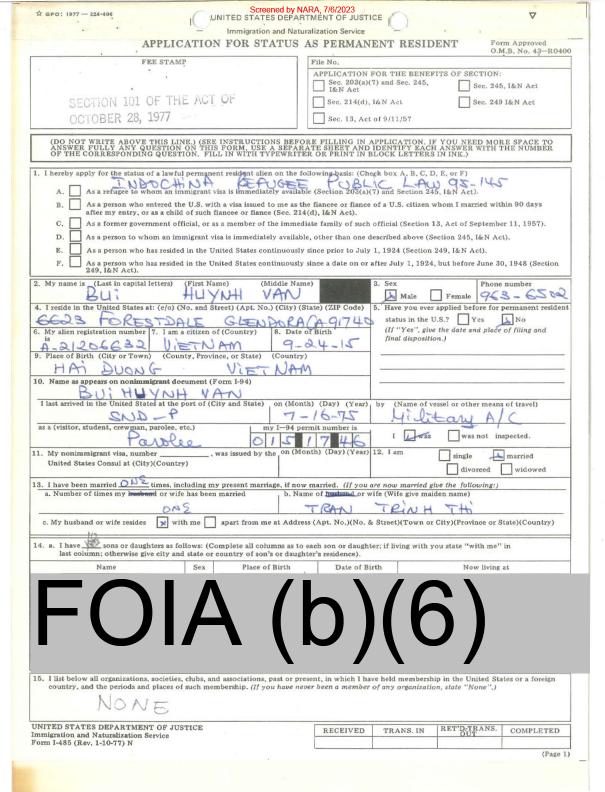 Screened by NARA, 7/6/2023
☆ GPO: 1977 — 224-496
UNITED STATES DEPARTMENT OF JUSTICE
Immigration and Naturalization Service
APPLICATION FOR STATUS AS PERMANENT RESIDENT
Form Approved
O.M.B. No. 43-R0400
FEE STAMP
SECTION 101 OF THE ACT OF
OCTOBER 28, 1977
File No.
APPLICATION FOR THE BENEFITS OF SECTION:
Sec. 203(a)(7) and Sec. 245, I&N Act
Sec. 245, I&N Act
Sec. 214(d), I&N Act
Sec. 249 I&N Act
Sec. 13, Act of 9/11/57
(DO NOT WRITE ABOVE THIS LINE.) (SEE INSTRUCTIONS BEFORE FILLING IN APPLICATION. IF YOU NEED MORE SPACE TO
ANSWER FULLY ANY QUESTION ON THIS FORM, USE A SEPARATE SHEET AND IDENTIFY EACH ANSWER WITH THE NUMBER
OF THE CORRESPONDING QUESTION. FILL IN WITH TYPEWRITER OR PRINT IN BLOCK LETTERS IN INK.)
1. I hereby apply for the status of a lawful permanent resident alien on the following basis: (Check box A, B, C, D, E, or F)
INDOCHINA REFUGEE PUBLIC LAW 95-145
A. As a refugee to whom an immigrant visa is immediately available (Section 203(a)(7) and Section 245, I&N Act).
B. As a person who entered the U.S. with a visa issued to me as the fiancee or fiance of a U.S. citizen whom I married within 90 days
after my entry, or as a child of such fiancee or fiance (Sec. 214(d), I&N Act).
C. As a former government official, or as a member of the immediate family of such official (Section 13, Act of September 11, 1957).
D. As a person to whom an immigrant visa is immediately available, other than one described above (Section 245, I&N Act).
E. As a person who has resided in the United States continuously since prior to July 1, 1924 (Section 249, I&N Act).
F. As a person who has resided in the United States continuously since a date on or after July 1, 1924, but before June 30, 1948 (Section
249, I&N Act).
2. My name is (Last in capital letters) (First Name) (Middle Name)
BUI HUYNH VAN
3. Sex
Male Female
Phone number
963-6502
4. I reside in the United States at: (c/o) (No. and Street) (Apt. No.) (City) (State) (ZIP Code)
6623 FORESTDALE GLENDORA CA 91740
5. Have you ever applied before for permanent resident
status in the U.S.? Yes No
(If "Yes", give the date and place of filing and
final disposition.)
6. My alien registration number is
A-21206632
7. I am a citizen of (Country)
VIETNAM
8. Date of Birth
9-24-15
9. Place of Birth (City or Town) (County, Province, or State) (Country)
HAI DUONG VIETNAM
10. Name as appears on nonimmigrant document (Form I-94)
BUI HUYNH VAN
I last arrived in the United States at the port of (City and State)
SND-P
on (Month) (Day) (Year)
7-16-75
by (Name of vessel or other means of travel)
Military A/C
as a (visitor, student, crewman, parolee, etc.)
Parolee
my I-94 permit number is
015 17 46
I was was not inspected.
11. My nonimmigrant visa, number , was issued by the
United States Consul at (City)(Country)
on (Month) (Day) (Year)
12. I am
single married
divorced widowed
13. I have been married ONE times, including my present marriage, if now married. (If you are now married give the following:)
a. Number of times my husband or wife has been married
ONE
b. Name of husband or wife (Wife give maiden name)
TRAN TRINH THI
c. My husband or wife resides with me apart from me at Address (Apt. No.)(No. & Street)(Town or City)(Province or State)(Country)
14. a. I have sons or daughters as follows: (Complete all columns as to each son or daughter; if living with you state "with me" in
last column; otherwise give city and state or country of son's or daughter's residence).
Name Sex Place of Birth Date of Birth Now living at
FOIA (b)(6)
15. I list below all organizations, societies, clubs, and associations, past or present, in which I have held membership in the United States or a foreign
country, and the periods and places of such membership. (If you have never been a member of any organization, state "None".)
NONE
UNITED STATES DEPARTMENT OF JUSTICE
Immigration and Naturalization Service
Form I-485 (Rev. 1-10-77) N
RECEIVED TRANS. IN RET'D-TRANS. OUT COMPLETED
(Page 1)